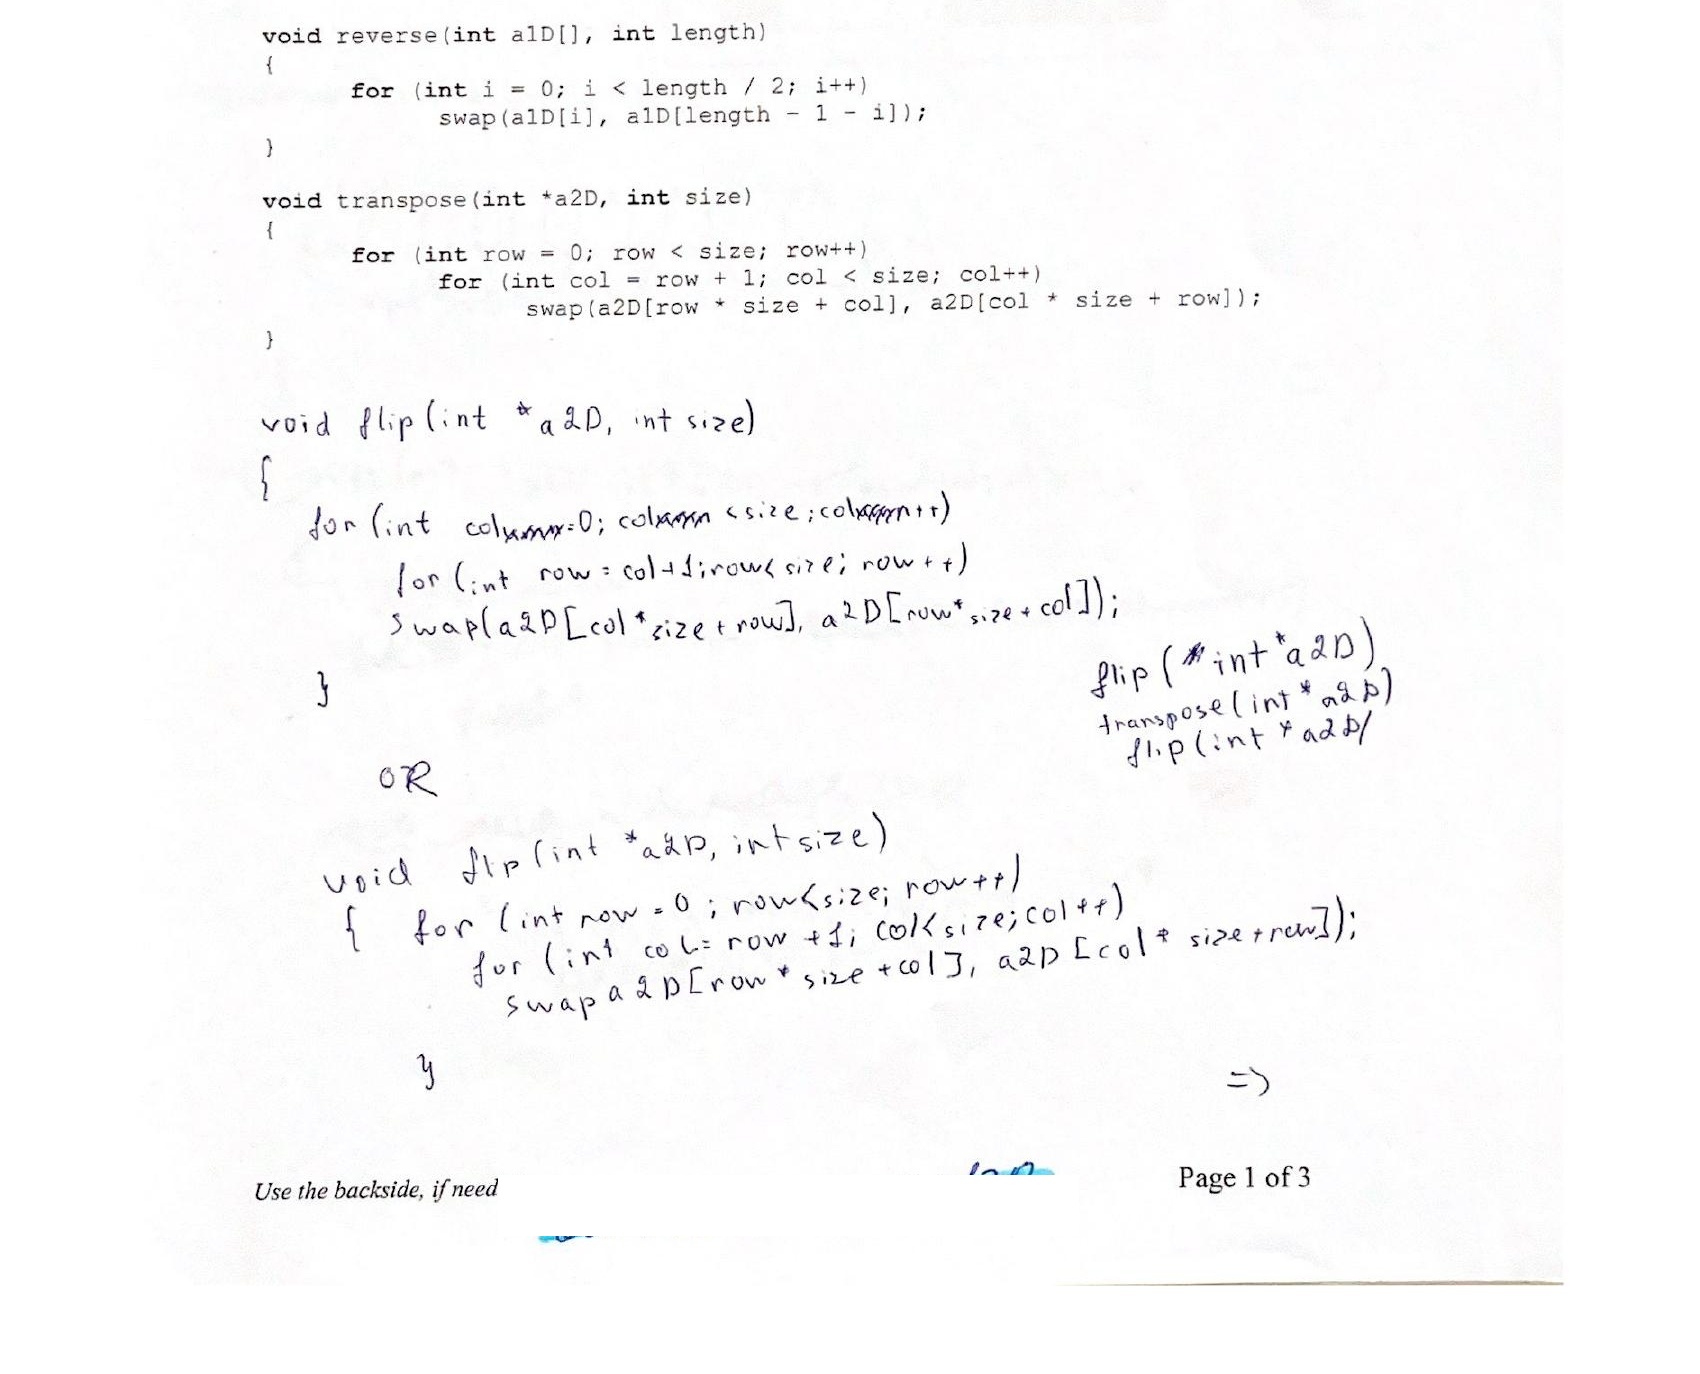 void reverse(int a1D[], int length)
{
for (int i = 0; i < length / 2; i++)
swap(a1D[i], a1D[length - 1 - i]);
}
void transpose(int *a2D, int size)
{
for (int row = 0; row < size; row++)
for (int col = row + 1; col < size; col++)
swap(a2D[row * size + col], a2D[col * size + row]);
}
void flip(int *a2D, int size)
{
for (int col=0; col <size; col++)
for (int row = col+1; row< size; row++)
swap(a2D[col*size+row], a2D[row*size+col]);
}
flip( int *a2D)
transpose(int *a2D)
flip(int *a2D)
OR
void flip(int *a2D, int size)
{ for (int row = 0; row<size; row++)
for (int col= row +1; col<size; col++)
swap a2D[row * size +col], a2D[col * size+row]);
}
=>
Use the backside, if need
Page 1 of 3